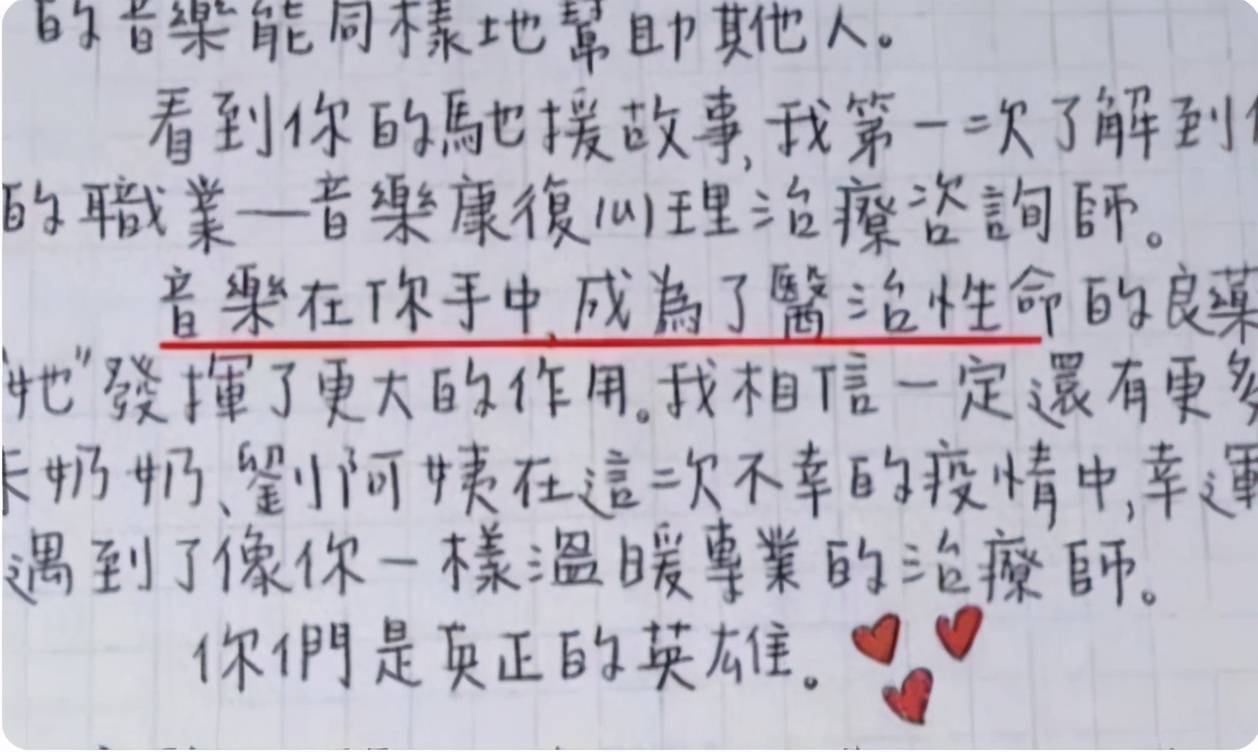 的音樂能同樣地幫助其他人。
看到你的馳援故事,我第一次了解到
的職業——音樂康復心理治療咨詢師。
音樂在你手中,成為了醫治性命的良藥
“她”發揮了更大的作用。我相信一定還有更多
奶奶、劉阿姨在這次不幸的疫情中,幸運
遇到了像你一樣溫暖專業的治療師。
你們是真正的英雄。